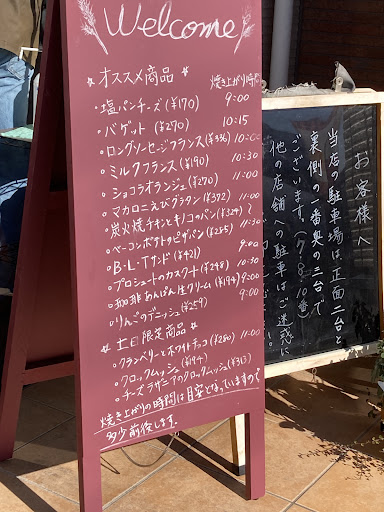 Welcome
☆オススメ商品☆ 焼き上がり時間
・塩パンチーズ(¥170) 9:00
・バゲット(¥270) 10:15
・ロングソーセージフランス(¥336) 10:00
・ミルクフランス(¥190) 10:30
・ショコラオランジュ(¥270) 11:00
・マカロニえびグラタン(¥372) 11:00
・炭火焼チキンとキノコのパン(¥324)
・ベーコンポテトピザパン(¥255) 11:30
・B・L・Tサンド(¥421) 9:00
・プロシュートのカスクート(¥248) 10:30
・珈琲あんぱん生クリーム(¥194) 9:00
・りんごのデニッシュ(¥259) 9:00
☆土日限定商品☆
・クランベリーとホワイトチョコ(¥280) 11:00
・クロックムッシュ(¥194)
・チーズラザニアのクロックムッシュ(¥313)
焼き上がりの時間は目安となっていますので
多少前後します。
お客様へ
当店の駐車場は正面二台と
裏側の一番奥の三台で
ございます。(7・8・10番)
他の店舗への駐車はご迷惑に